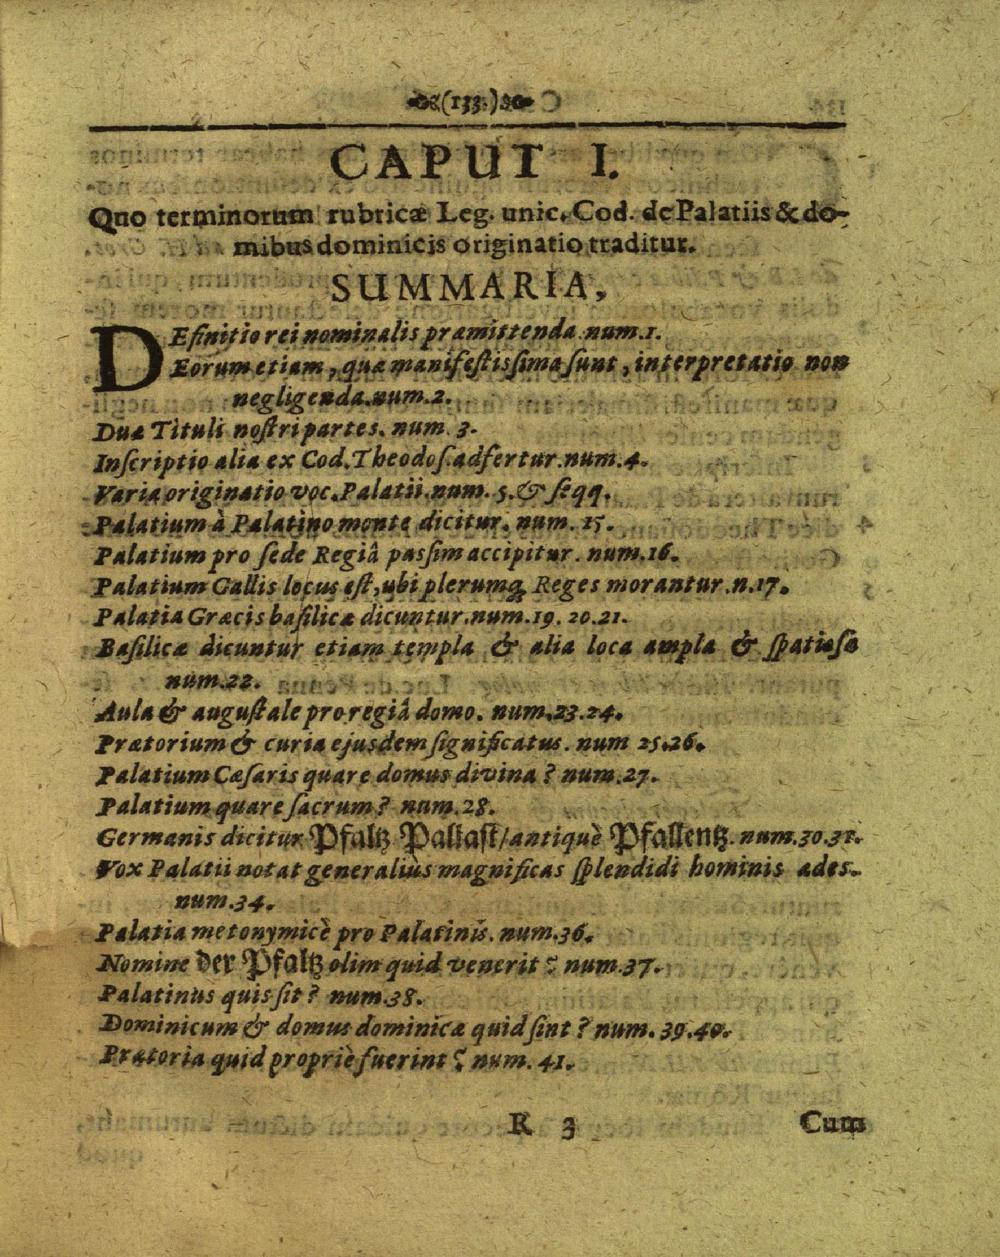 (133.)
CAPUT I.
Quo terminorum rubricæ Leg. unic. Cod. de Palatiis & do-
mibus dominicis originatio traditur.
SUMMARIA,
DEfinitio rei nominalis præmittenda num.1.
Eorum etiam, quæ manifestissima sunt, interpretatio non
negligenda. num.2.
Duæ Tituli nostri partes. num. 3.
Inscriptio alia ex Cod. Theodos. adfertur. num.4.
Varia originatio voc. Palatii. num. 5. & seqq.
Palatium à Palatino monte dicitur. num. 15.
Palatium pro sede Regiâ passim accipitur. num.16.
Palatium Gallis locus est, ubi plerumq; Reges morantur. n.17.
Palatia Græcis basilicæ dicuntur. num.19. 20.21.
Basilicæ dicuntur etiam templa & alia loca ampla & spatiosa
num.22.
Aula & augustale pro regiâ domo. num.23.24.
Prætorium & curia ejusdem significatus. num 25.26.
Palatium Cæsaris quare domus divina? num.27.
Palatium quare sacrum? num.28.
Germanis dicitur Pfaltz Pallast/ antiquè Pfallentz. num.30.31.
Vox Palatii notat generaliùs magnificas splendidi hominis ædes.
num.34.
Palatia metonymicè pro Palatinis. num.36.
Nomine der Pfaltz olim quid venerit? num.37.
Palatinus quis sit? num.38.
Dominicum & domus dominicæ quid sint? num. 39.40.
Prætoria quid propriè fuerint? num. 41.
R 3 Cum